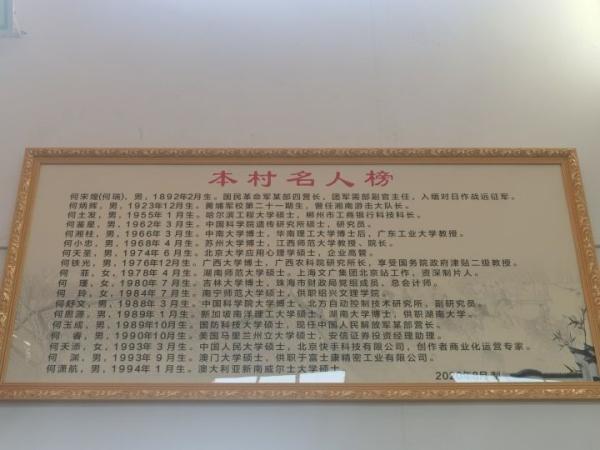 本村名人榜
何宋煌(何瑞)，男，1892年2月生。国民革命军某部四营长，团军需部副官主任，入缅对日作战远征军。
何炳辉，男，1923年12月生。黄埔军校第二十一期生，曾任湘南游击大队长。
何土发，男，1955年1月生。哈尔滨工程大学硕士，郴州市工商银行科技科长。
何鉴星，男，1962年3月生。中国科学院遗传研究所硕士，研究员。
何湘桂，男，1966年3月生。中南大学博士，华南理工大学博士后，广东工业大学教授。
何小忠，男，1968年4月生。苏州大学博士，江西师范大学教授、院长。
何天圣，男，1974年6月生。北京大学应用心理学硕士，企业高管。
何铁光，男，1976年12月生。广西大学博士，广西农科院研究所长，享受国务院政府津贴二级教授。
何 菲，女，1978年4月生。湖南师范大学硕士，上海文广集团北京站工作，资深制片人。
何 瑾，女，1980年7月生。吉林大学博士，珠海市财政局党组成员，总会计师。
何 玲，女，1984年7月生。南宁师范大学硕士，供职绍兴文理学院。
何舒文，男，1988年3月生。中国科学院大学博士，北方自动控制技术研究所，副研究员。
何思源，男，1989年1月生。新加坡南洋理工大学硕士，湖南大学博士，供职湖南大学。
何玉成，男，1989年10月生。国防科技大学硕士，现任中国人民解放军某部营长。
何 睿，男，1990年10月生。美国马里兰州立大学硕士，安信证券投资经理助理。
何天添，女，1993年3月生。中国人民大学硕士，北京快手科技有限公司，创作者商业化运营专家。
何 渊，男，1993年9月生。澳门大学硕士，供职于富士康精密工业有限公司。
何潇航，男，1994年1月生。澳大利亚新南威尔士大学硕士。